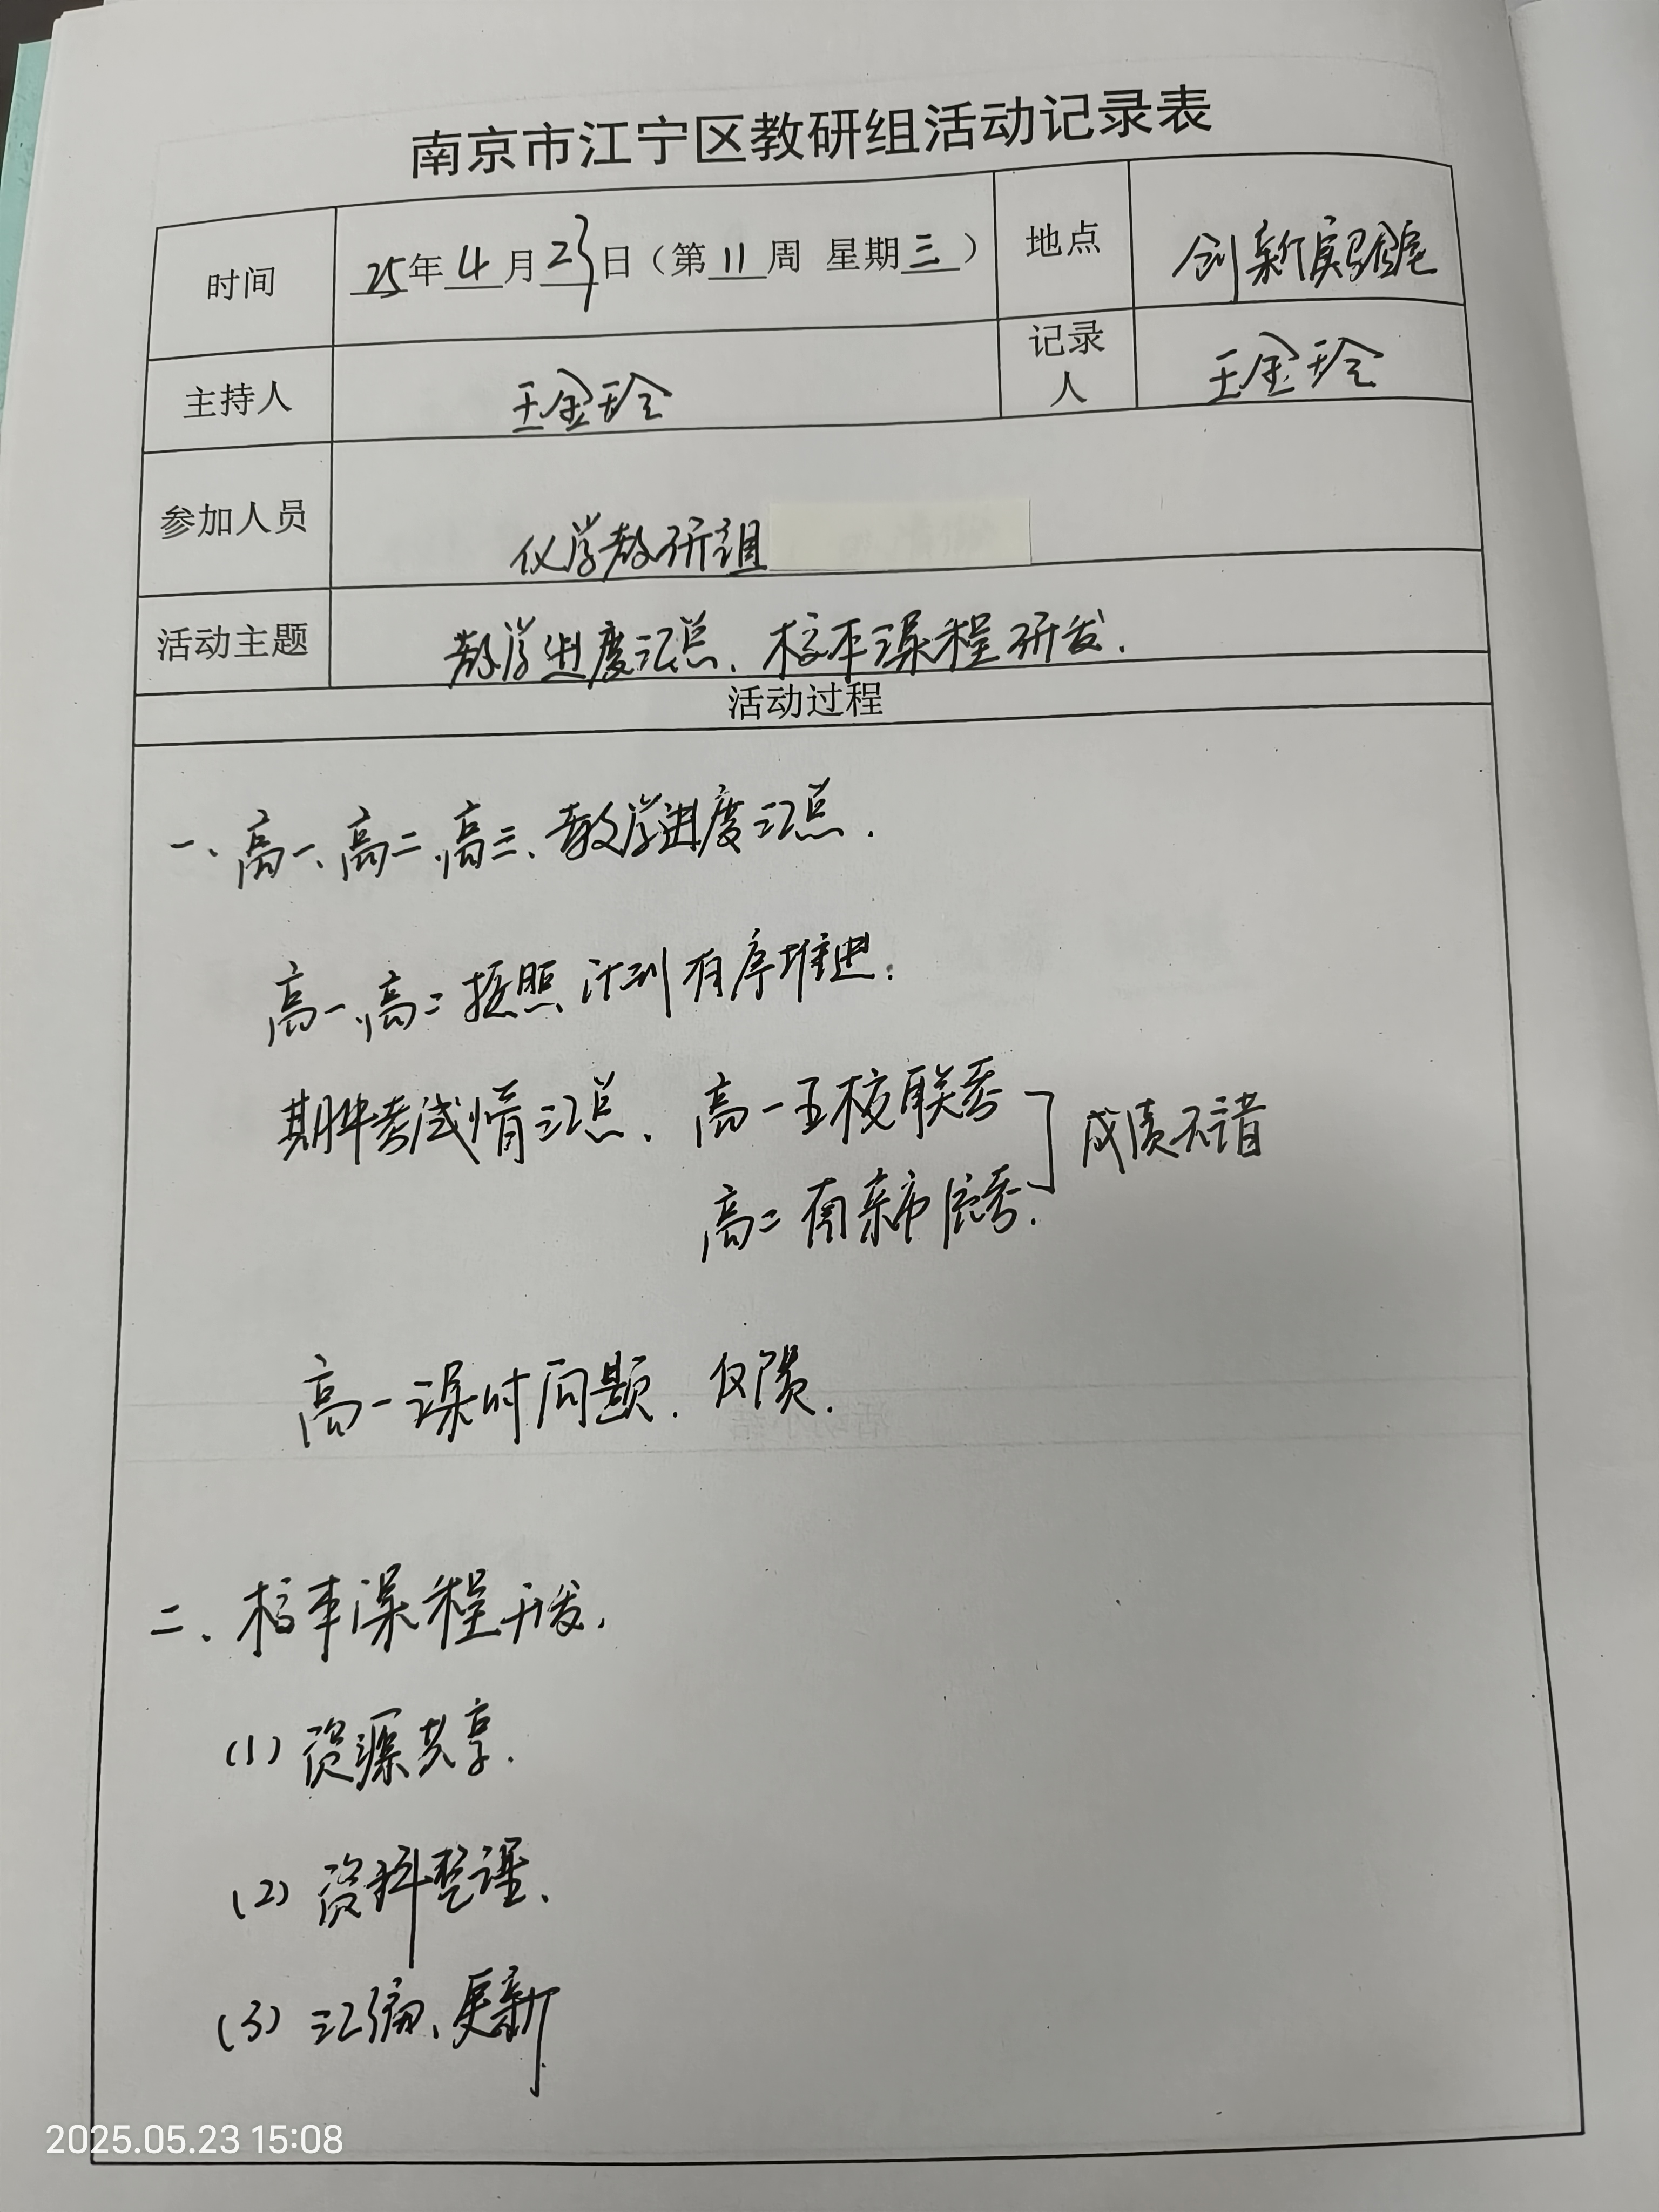 南京市江宁区教研组活动记录表
时间 25年4月23日（第11周 星期三） 地点 创新实验室
主持人 王金玲 记录人 王金玲
参加人员 化学教研组
活动主题 教学进度汇总、校本课程研发.
活动过程
一、高一、高二、高三、教学进度汇总.
高一、高二按照计划有序推进.
期中考试情汇总、高一五校联考
高二南京市统考. 成绩不错
高一课时问题.
二、校本课程开发.
(1) 资源共享.
(2) 资料整理、
(3) 汇编、更新
2025.05.23 15:08